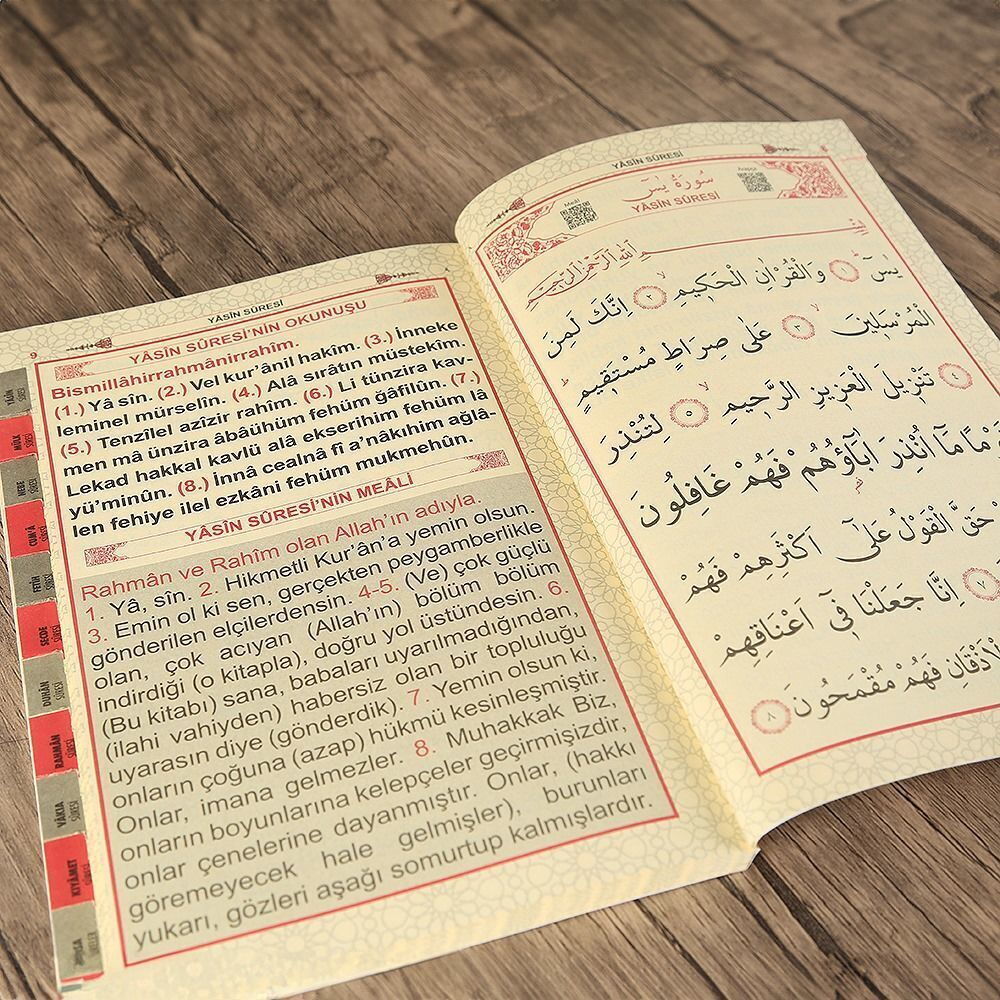 9
YÂSÎN SÛRESİ
YÂSÎN SÛRESİ'NİN OKUNUŞU
Bismillâhirrahmânirrahîm.
(1.) Yâ sîn. (2.) Vel kur'ânil hakîm. (3.) İnneke
leminel mürselîn. (4.) Alâ sırâtın müstekîm.
(5.) Tenzîlel azîzir rahîm. (6.) Li tünzira kav-
men mâ ünzira âbâühüm fehüm ğafilûn. (7.)
Lekad hakkal kavlü alâ ekserihim fehüm lâ
yü'minûn. (8.) İnnâ cealnâ fî a'nâkıhim ağlâ-
len fehiye ilel ezkâni fehüm mukmehûn.
YÂSÎN SÛRESİ'NİN MEÂLİ
Rahmân ve Rahîm olan Allah'ın adıyla.
1. Yâ, sîn. 2. Hikmetli Kur'ân'a yemin olsun.
3. Emin ol ki sen, gerçekten peygamberlikle
gönderilen elçilerdensin. 4-5. (Ve) çok güçlü
olan, çok acıyan (Allah'ın) bölüm bölüm
indirdiği (o kitapla), doğru yol üstündesin. 6.
(Bu kitabı) sana, babaları uyarılmadığından,
(ilahi vahiyden) habersiz olan bir topluluğu
uyarasın diye (gönderdik). 7. Yemin olsun ki,
onların çoğuna (azap) hükmü kesinleşmiştir.
Onlar, imana gelmezler. 8. Muhakkak Biz,
onların boyunlarına kelepçeler geçirmişizdir,
onlar çenelerine dayanmıştır. Onlar, (hakkı
göremeyecek hale gelmişler), burunları
yukarı, gözleri aşağı somurtup kalmışlardır.
YÂSÎN SÛRESİ
MÜLK SÛRESİ
NEBE SÛRESİ
CUM'A SÛRESİ
FETİH SÛRESİ
SECDE SÛRESİ
DUHÂN SÛRESİ
RAHMÂN SÛRESİ
VÂKIA SÛRESİ
KIYÂMET SÛRESİ
YÂSÎN SÛRESİ
Meâli
سُورَةُ يٰسٓ
YÂSÎN SÛRESİ
بِسْمِ اللّٰهِ الرَّحْمٰنِ الرَّحِيمِ
يٰسٓ ١ وَالْقُرْاٰنِ الْحَكِيمِ ٢ اِنَّكَ لَمِنَ
الْمُرْسَلِينَ ٣ عَلٰى صِرَاطٍ مُسْتَقِيمٍ
تَنْزِيلَ الْعَزِيزِ الرَّحِيمِ ٥ لِتُنْذِرَ
مَا اُنْذِرَ اٰبَٓاؤُهُمْ فَهُمْ غَافِلُونَ
حَقَّ الْقَوْلُ عَلٰٓى اَكْثَرِهِمْ فَهُمْ
٧ اِنَّا جَعَلْنَا فٓي اَعْنَاقِهِمْ
الْاَذْقَانِ فَهُمْ مُقْمَحُونَ ٨